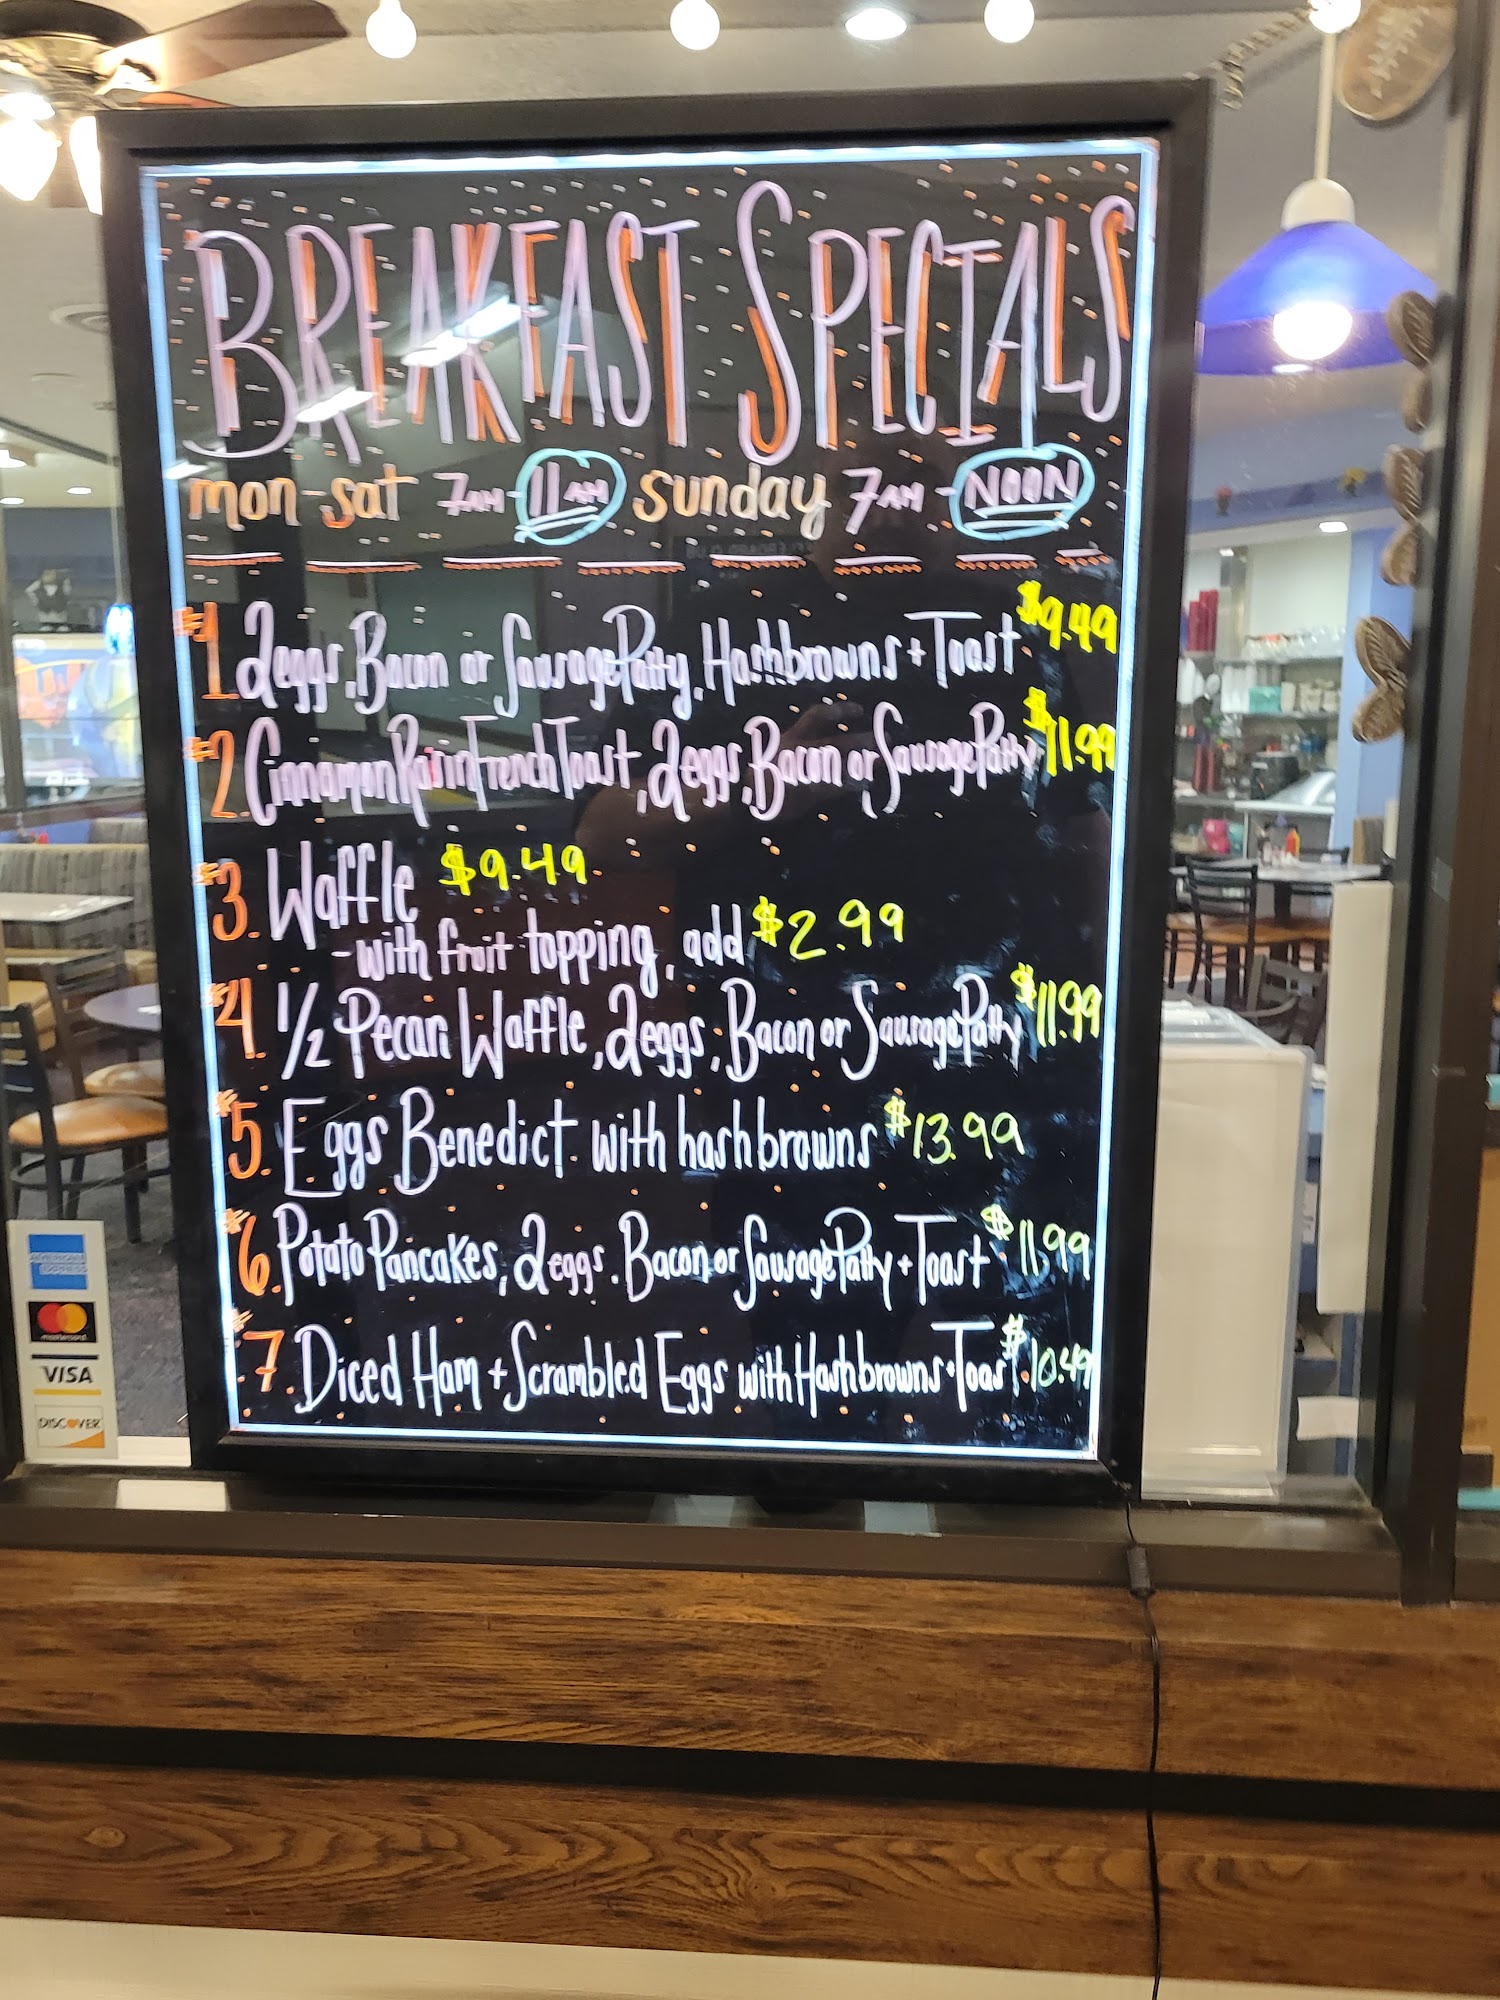 BREAKFAST SPECIALS
mon-sat 7AM-11AM sunday 7AM-NOON
#1 2eggs, Bacon or Sausage Patty, Hashbrowns + Toast $9.49
#2. Cinnamon Raisin French Toast, 2eggs, Bacon or Sausage Patty $11.99
#3. Waffle $9.49
-with fruit topping, add $2.99
#4. 1/2 Pecan Waffle, 2eggs, Bacon or Sausage Patty $11.99
#5. Eggs Benedict with hashbrowns $13.99
#6. Potato Pancakes, 2eggs. Bacon or Sausage Patty + Toast $11.99
#7. Diced Ham + Scrambled Eggs with Hashbrowns + Toast $10.49
AMERICAN EXPRESS
mastercard
VISA
DISCOVER